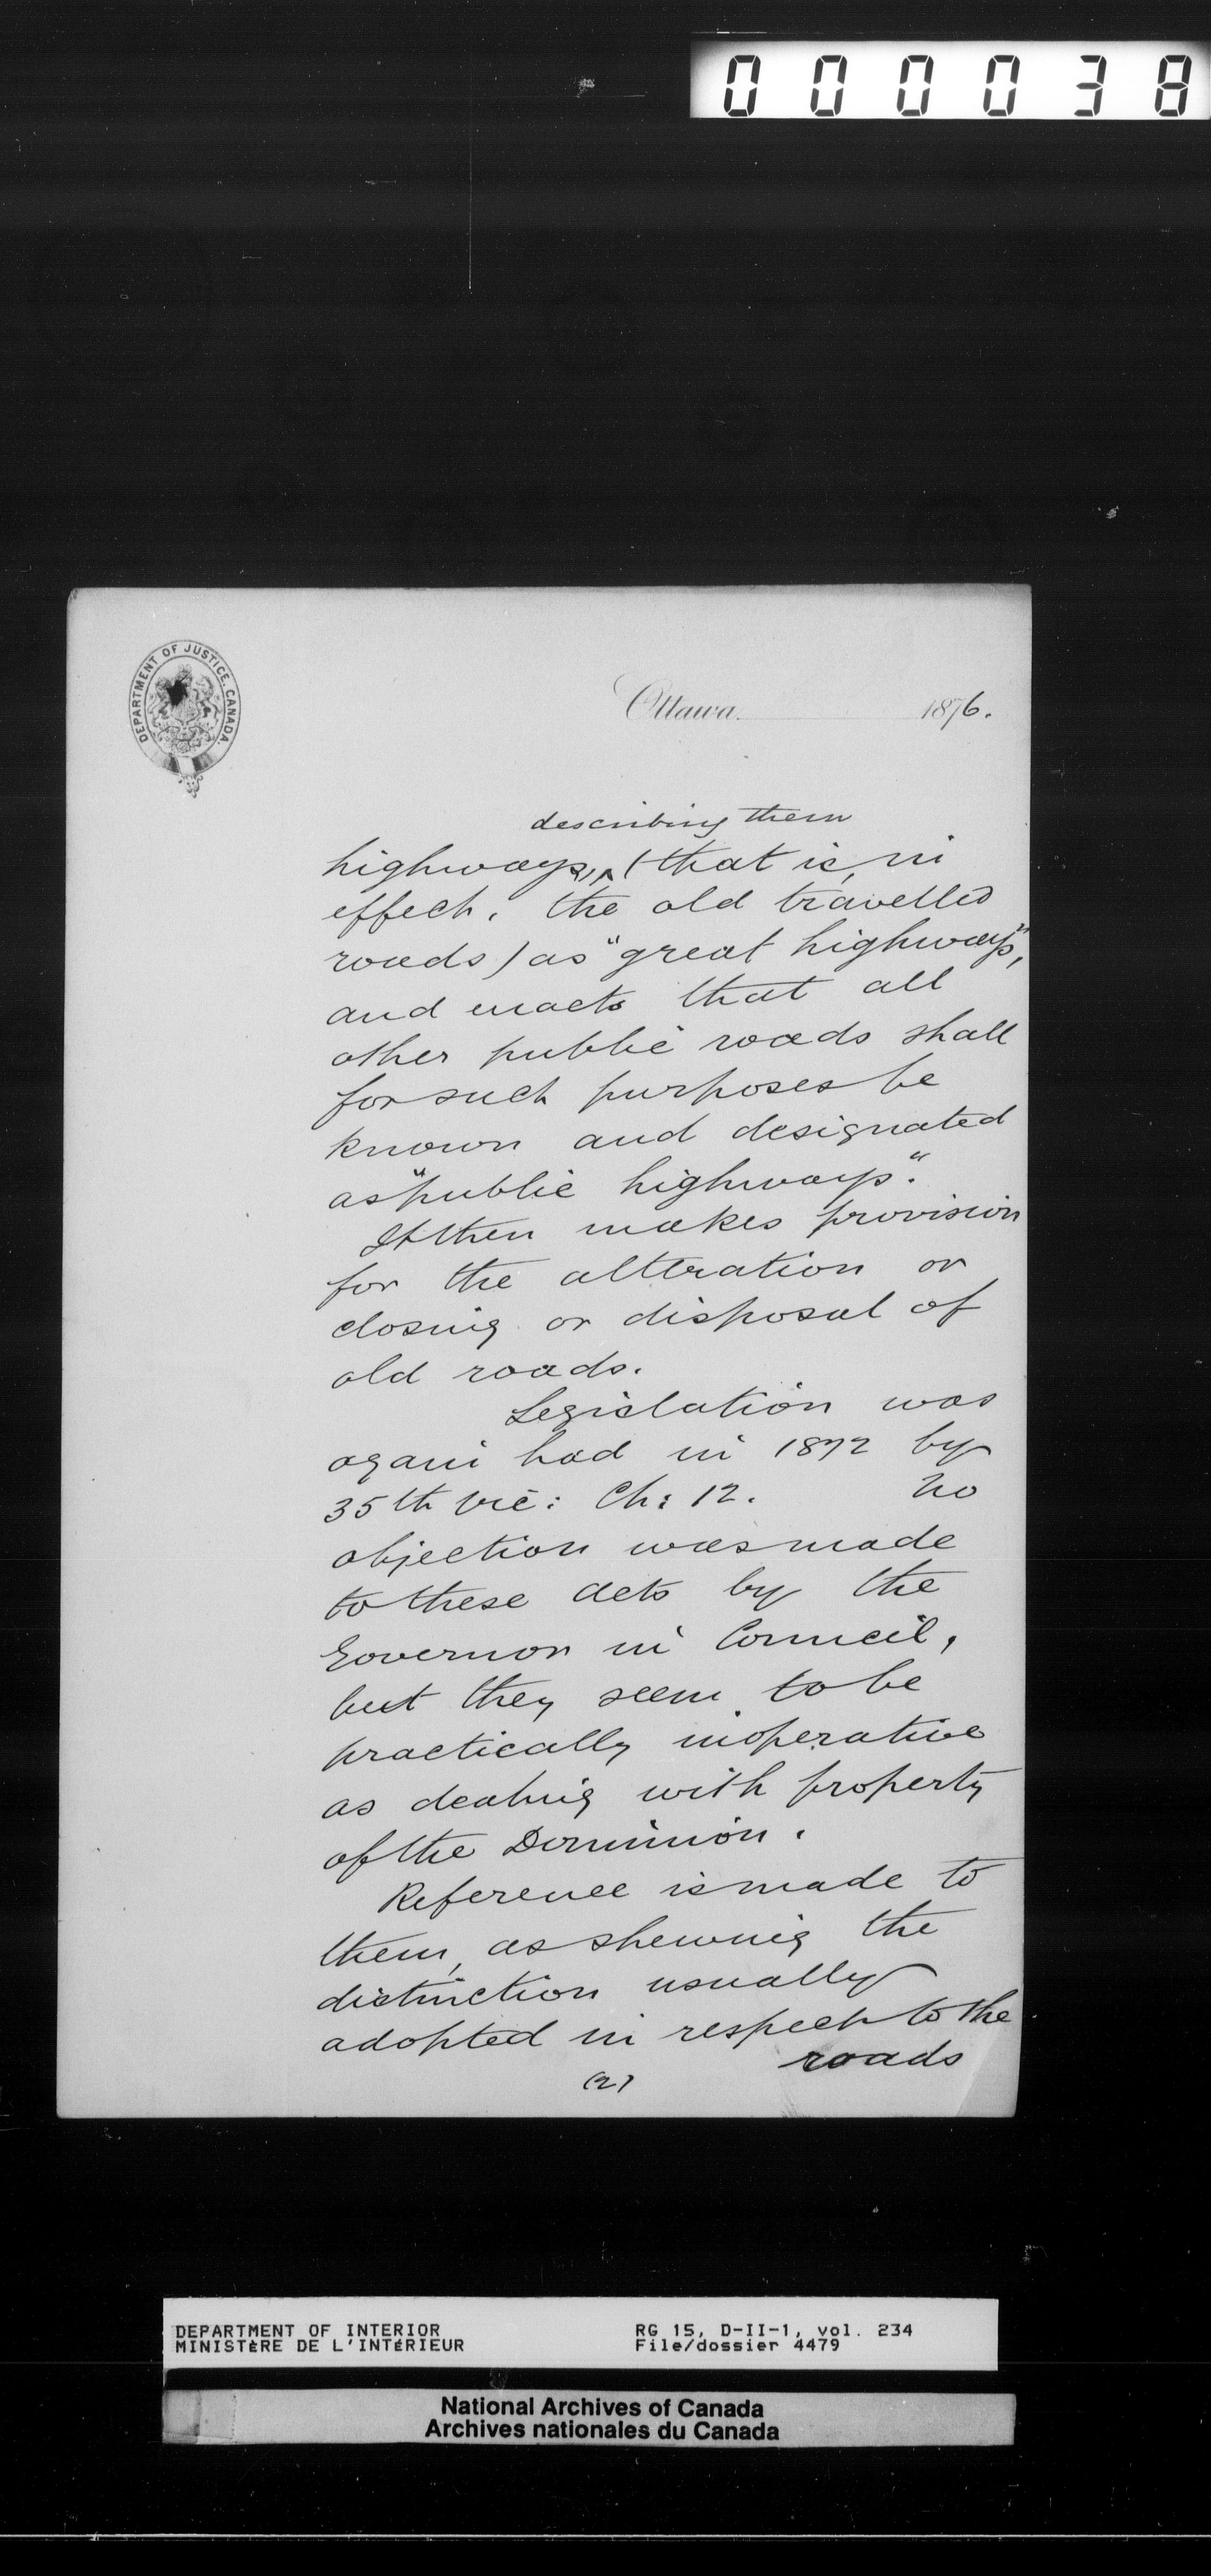 000038
DEPARTMENT OF JUSTICE, CANADA.
Ottawa. 1876.
describing them
highways,, ^ (that is, in
effect, the old travelled
roads) as "great highways",
and enacts that all
other public roads shall
for such purposes be
known and designated
as "public highways".
It then makes provision
for the alteration or
closing or disposal of
old roads.
Legislation was
again had in 1872 by
35th Vic: Ch: 12. No
objection was made
to these Acts by the
Governor in Council,
but they seem to be
practically inoperative
as dealing with property
of the Dominion.
Reference is made to
them, as shewing the
distinction usually
adopted in respect to the
roads
(2)
DEPARTMENT OF INTERIOR RG 15, D-II-1, vol. 234
MINISTÈRE DE L'INTÉRIEUR File/dossier 4479
National Archives of Canada
Archives nationales du Canada